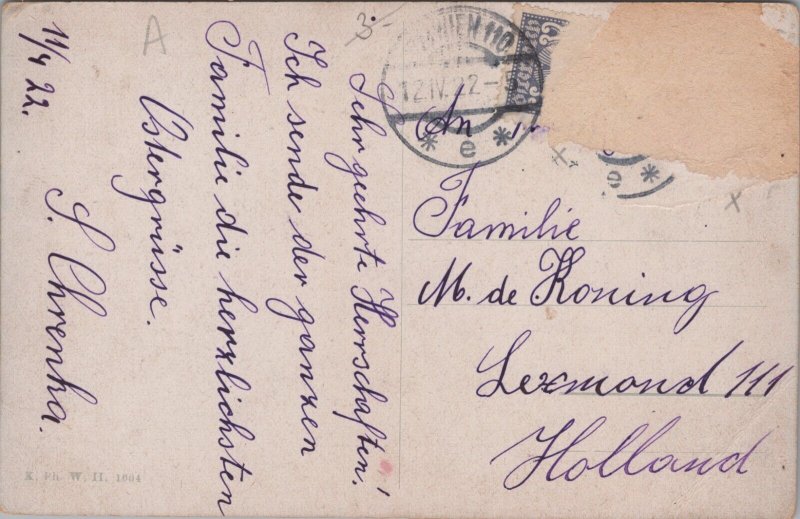 A
3.-
WIEN 110
12.IV.22
* e *
e *
11/4 22.
Sehr geehrte Herrschaften!
Ich sende der ganzen
Familie die herzlichsten
Ostergrüsse.
An
Familie
M. de Koning
Lexmond 111
Holland
x
x
K. Ph. W. II. 1004